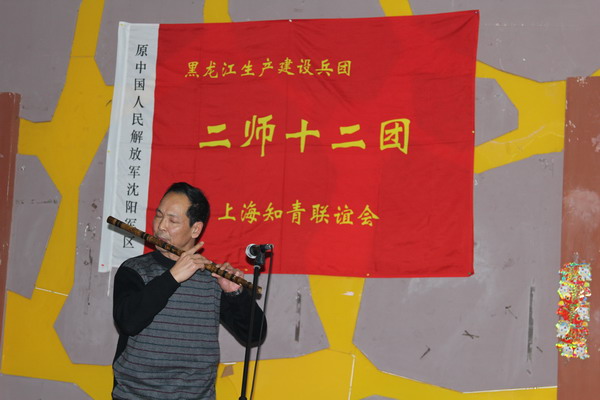 原中国人民解放军沈阳军区
黑龙江生产建设兵团
二师十二团
上海知青联谊会